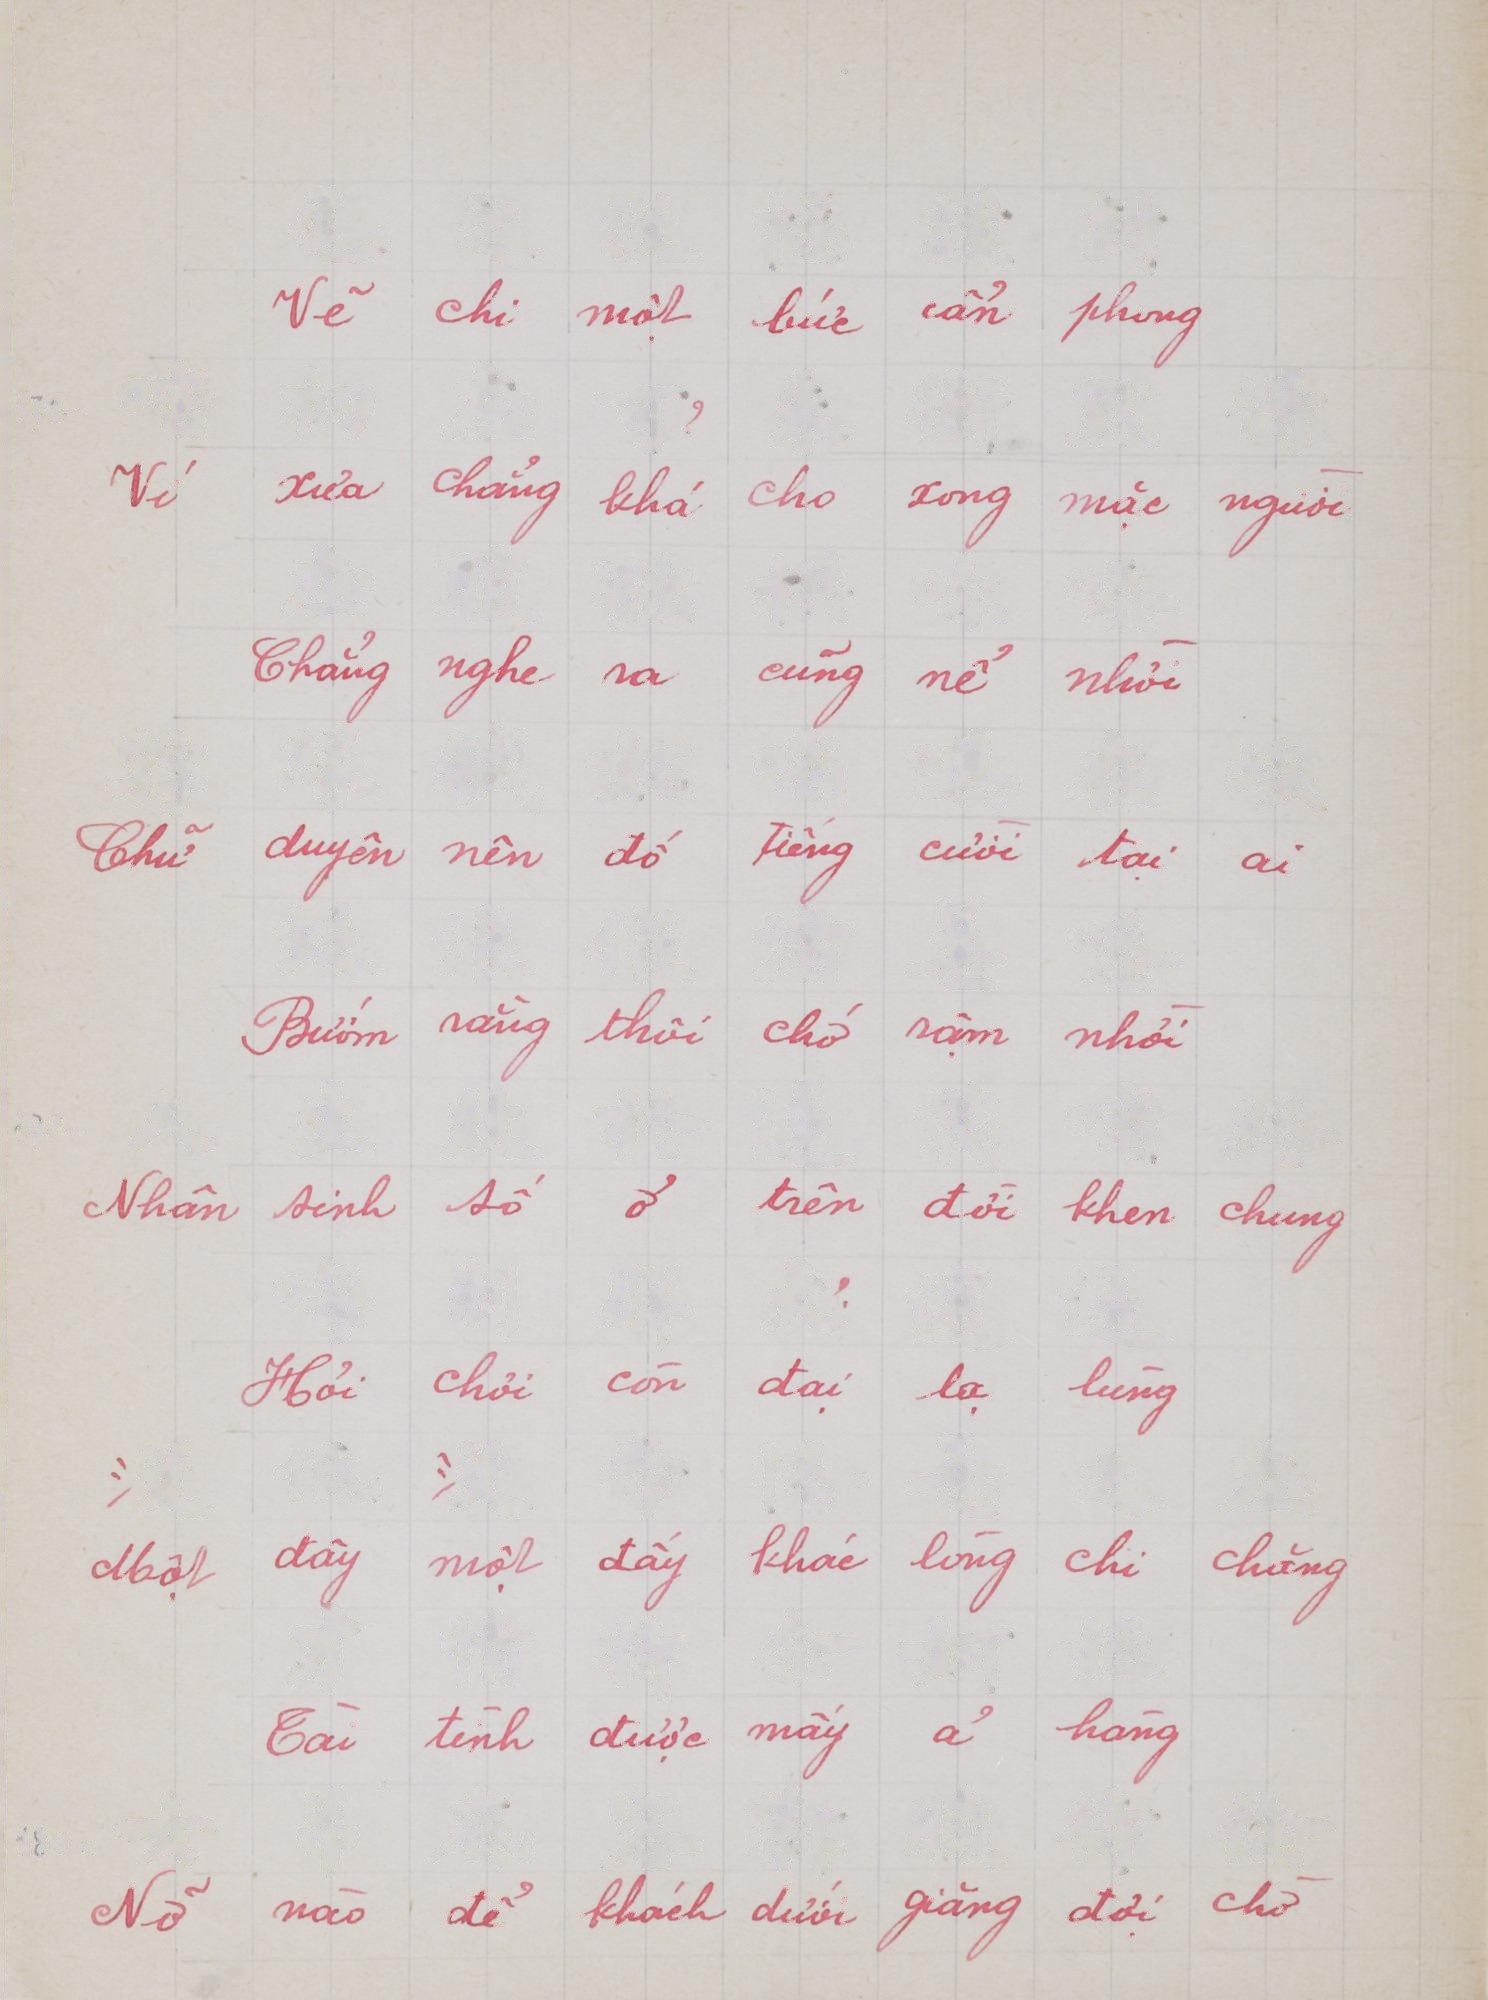 Vẽ chi một bức cẩn phong
?
Ví xưa chẳng khá cho xong mặc người
Chẳng nghe ra cũng nể nhời
Chữ duyên nên đố tiếng cười tại ai
Bướm rằng thôi chớ rậm nhời
Nhân sinh số ở trên đời khen chung
?
Hỏi chơi còn đại lạ lùng
Một đây một đấy khác lòng chi chăng
Tài tình được mấy ả hằng
Nỡ nào để khách dưới giăng đợi chờ